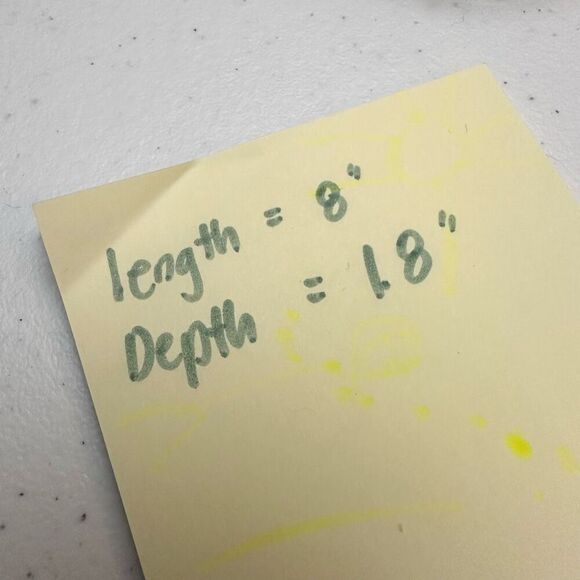 length = 8"
Depth = 1.8"